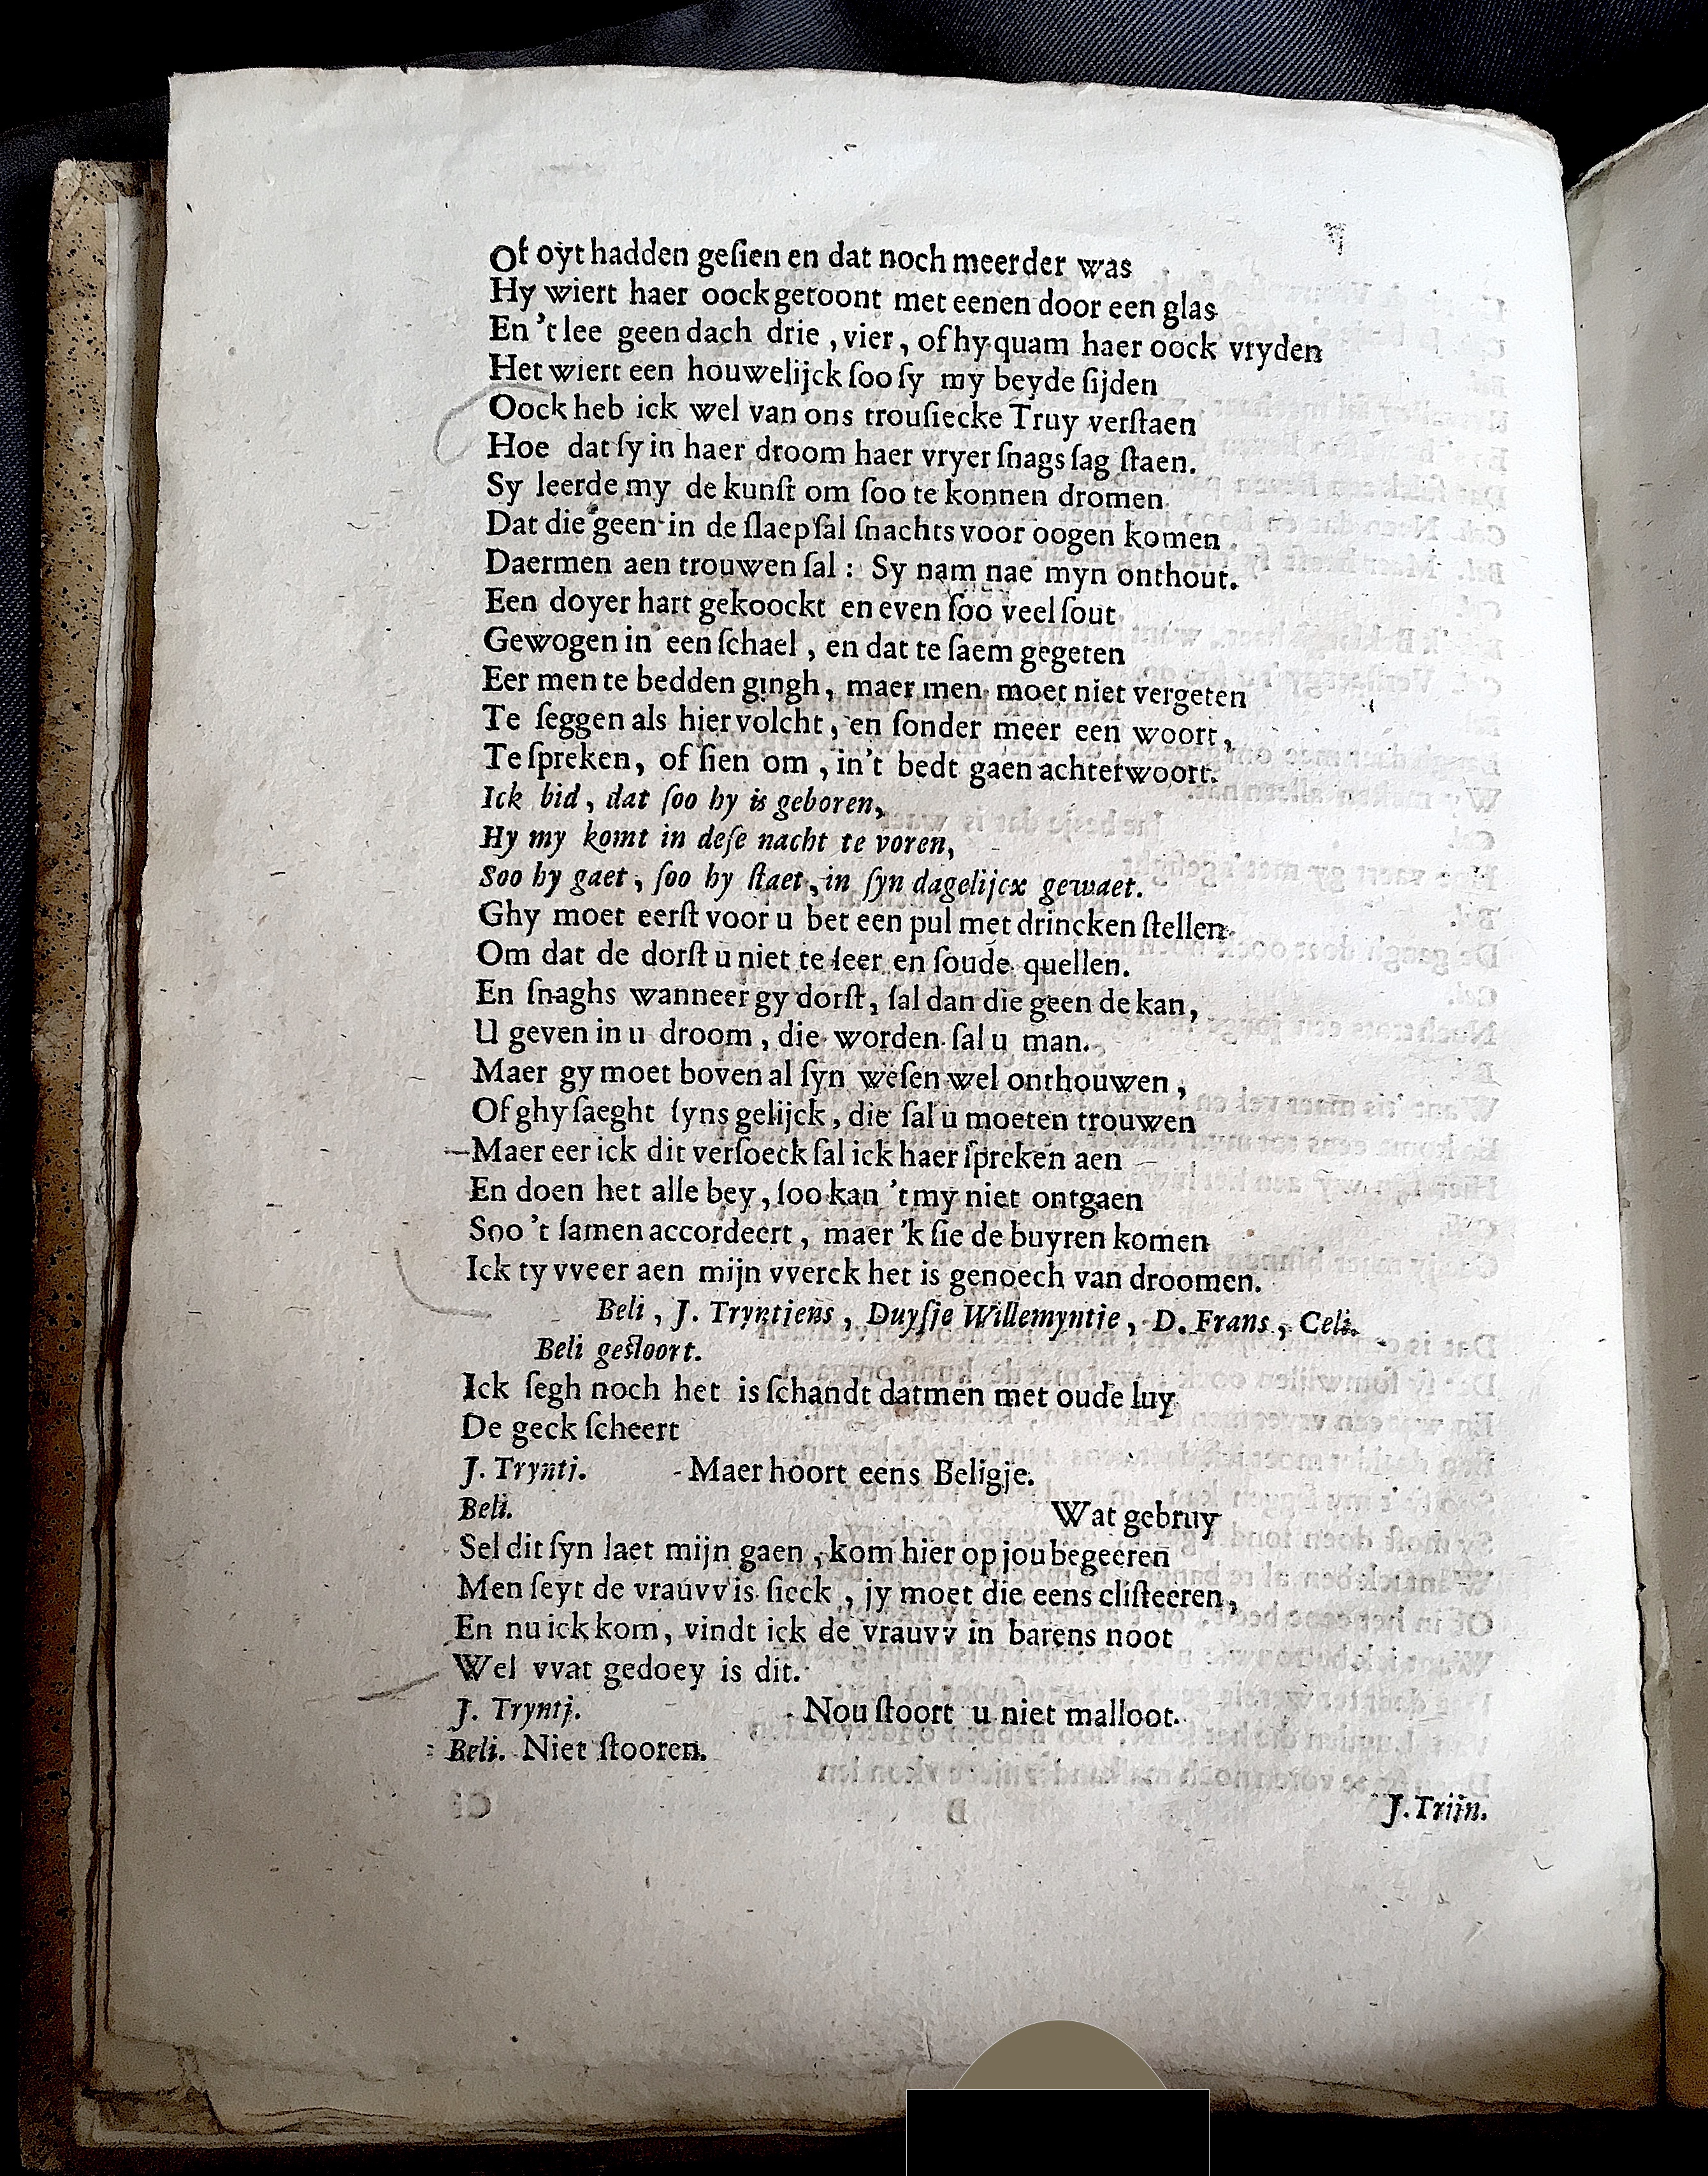 Of oyt hadden geſien en dat noch meerder was
Hy wiert haer oock getoont met eenen door een glas
En 't lee geen dach drie , vier , of hy quam haer oock vryden
Het wiert een houwelijck ſoo ſy my beyde ſijden
Oock heb ick wel van ons trouſiecke Truy verſtaen
Hoe dat ſy in haer droom haer vryer ſnags ſag ſtaen.
Sy leerde my de kunſt om ſoo te konnen dromen
Dat die geen in de ſlaep ſal ſnachts voor oogen komen
Daermen aen trouwen ſal : Sy nam nae myn onthout.
Een doyer hart gekoockt en even ſoo veel ſout
Gewogen in een ſchael , en dat te ſaem gegeten
Eer men te bedden gingh , maer men moet niet vergeten
Te ſeggen als hier volcht , en ſonder meer een woort ,
Te ſpreken, of ſien om , in't bedt gaen achterwoort.
Ick bid , dat ſoo hy is geboren,
Hy my komt in deſe nacht te voren,
Soo hy gaet , ſoo hy ſtaet , in ſyn dagelijcx gewaet.
Ghy moet eerſt voor u bet een pul met drincken ſtellen
Om dat de dorſt u niet te ſeer en ſoude quellen.
En ſnaghs wanneer gy dorſt , ſal dan die geen de kan,
U geven in u droom , die worden ſal u man.
Maer gy moet boven al ſyn weſen wel onthouwen ,
Of ghy ſaeght ſyns gelijck , die ſal u moeten trouwen
Maer eer ick dit verſoeck ſal ick haer ſpreken aen
En doen het alle bey , ſoo kan 't my niet ontgaen
Soo 't ſamen accordeert , maer 'k ſie de buyren komen
Ick ty vveer aen mijn vverck het is genoech van droomen.
Beli , J. Tryntiens , Duyſje Willemyntie , D. Frans , Celi.
Beli geſtoort.
Ick ſegh noch het is ſchandt datmen met oude luy
De geck ſcheert
J. Trynti. Maer hoort eens Beligje.
Beli. Wat gebruy
Sel dit ſyn laet mijn gaen , kom hier op jou begeeren
Men ſeyt de vrauvv is ſieck , jy moet die eens cliſteeren ,
En nu ick kom , vindt ick de vrauvv in barens noot
Wel vvat gedoey is dit.
J. Tryntj. Nou ſtoort u niet malloot.
Beli. Niet ſtooren.
J. Triin.